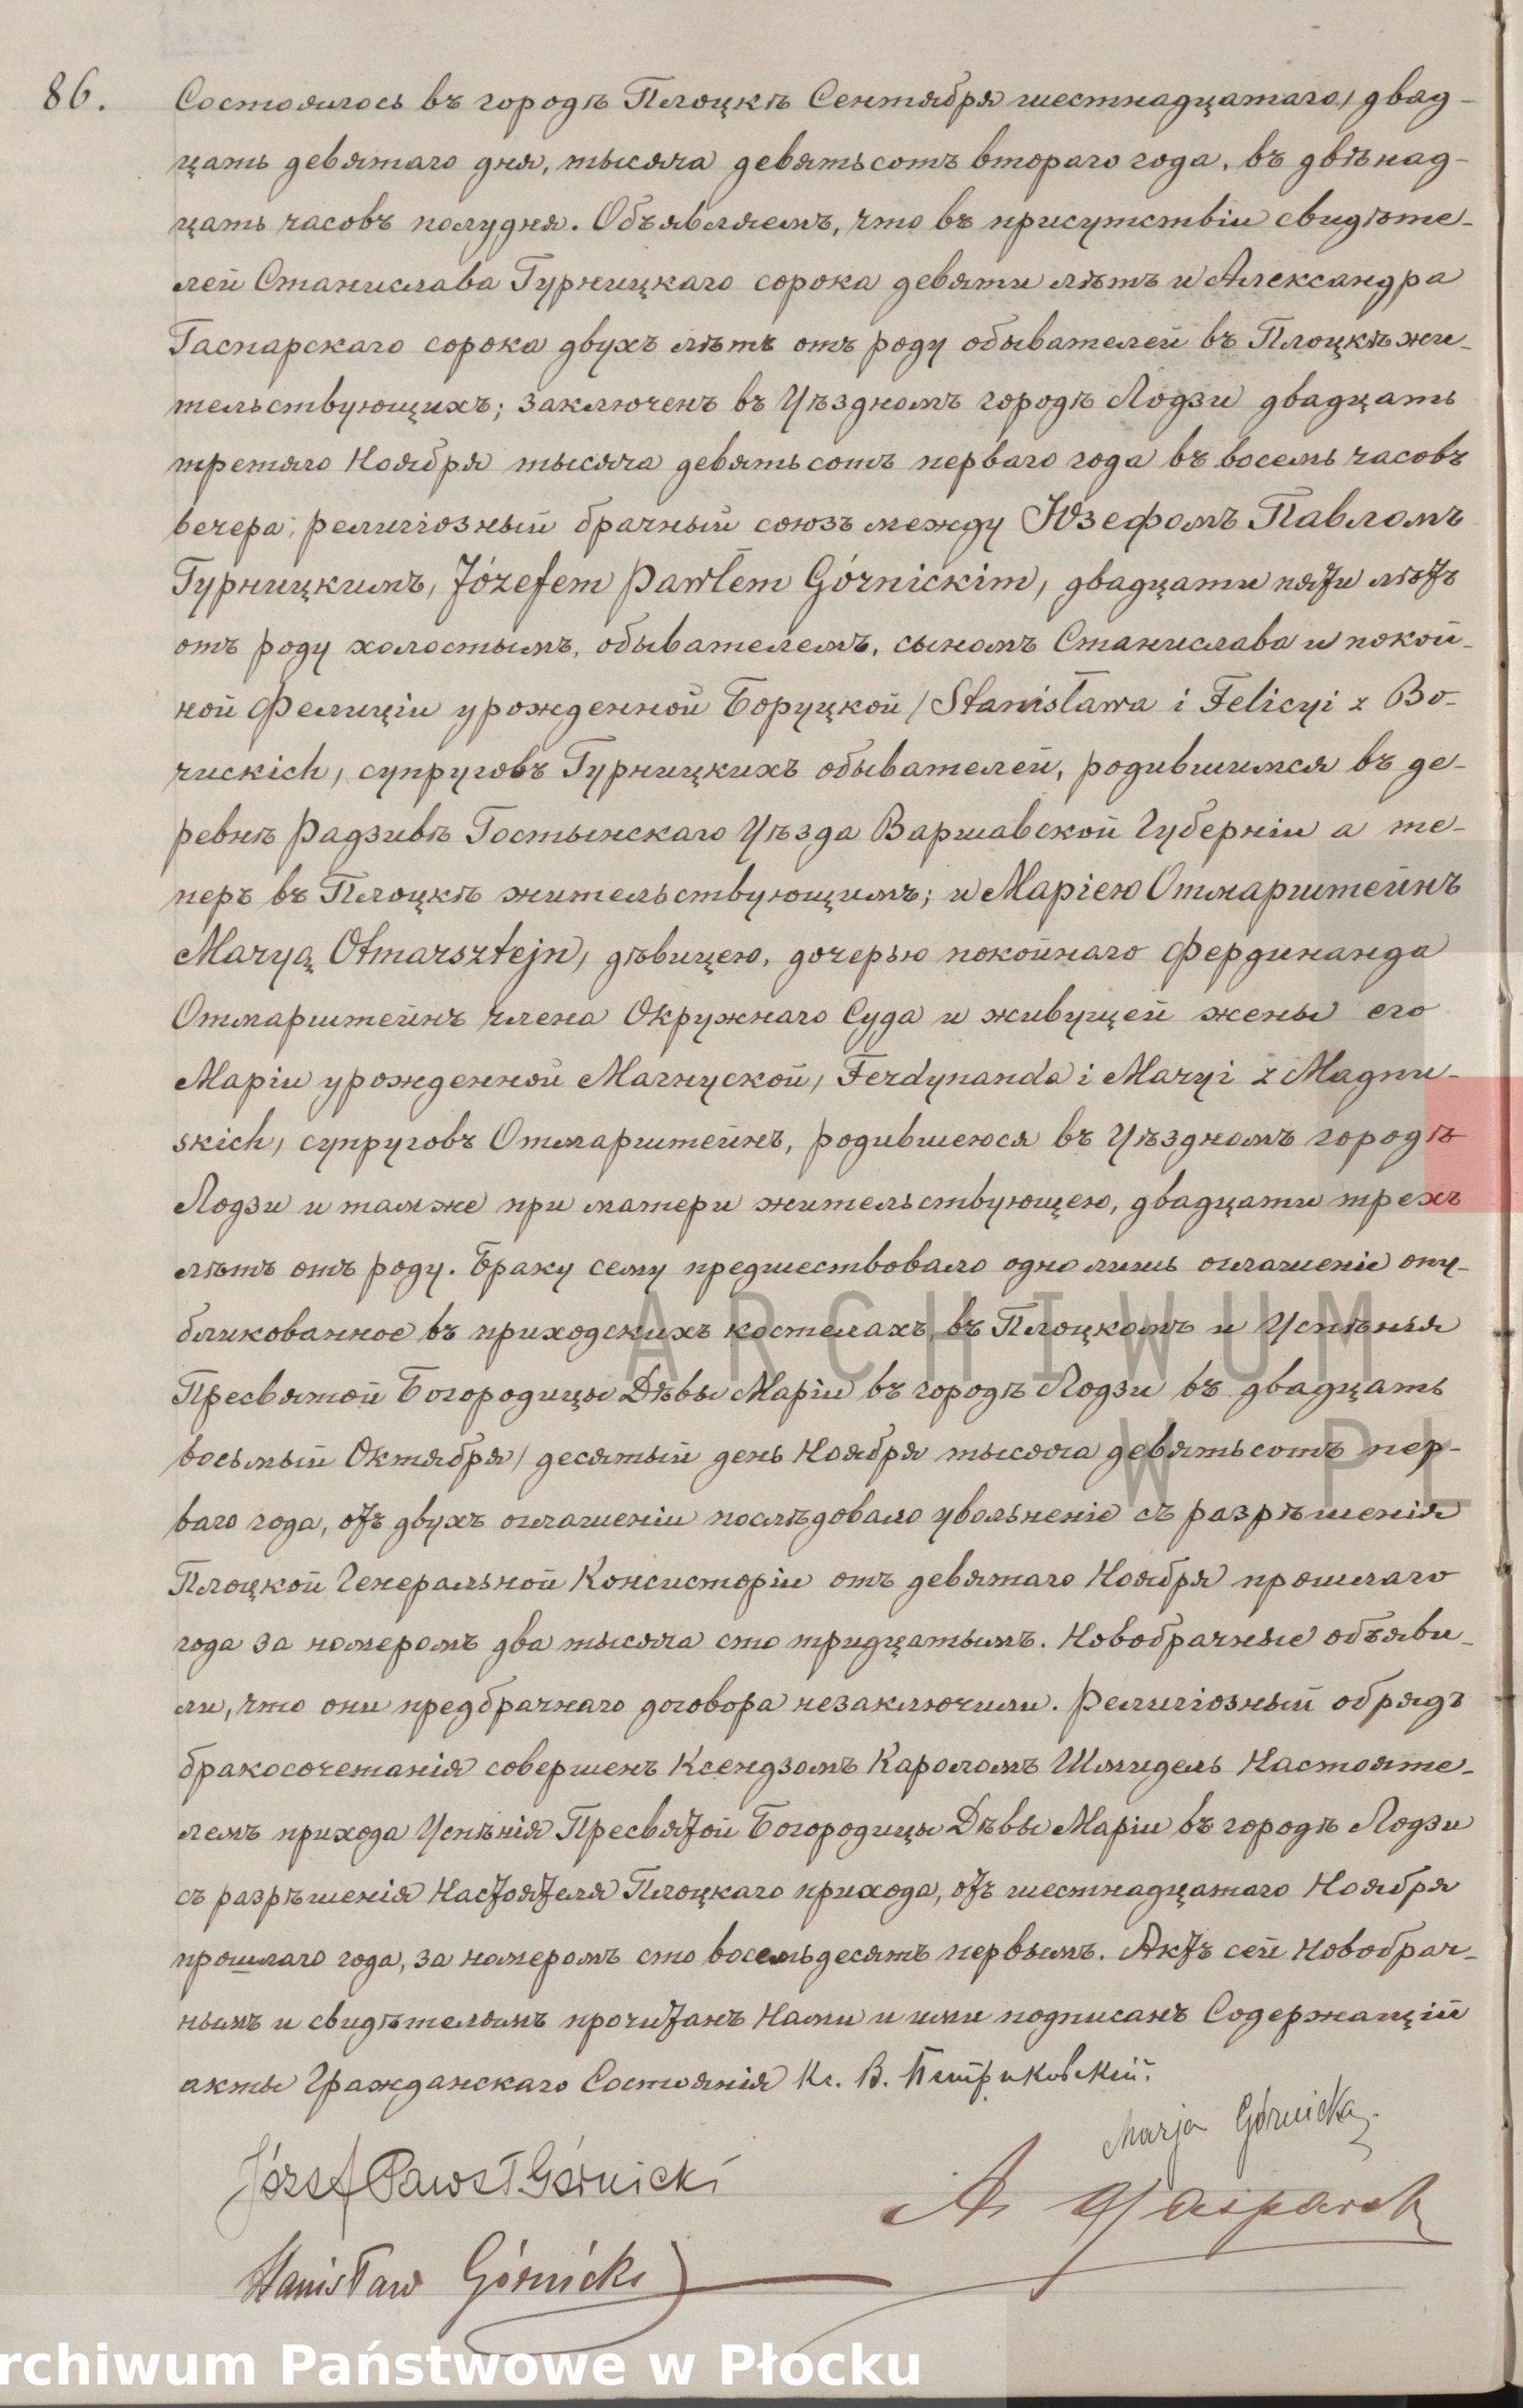 86. Состоялось въ городѣ Плоцкѣ Сентября шестнадцатаго / двад-
цать девятаго дня, тысяча девятьсотъ втораго года, въ двѣнад-
цать часовъ полудня. Объявляемъ, что въ присутствіи свидѣте-
лей Станислава Гурницкаго сорока девяти лѣтъ и Александра
Гаспарскаго сорока двухъ лѣтъ отъ роду обывателей въ Плоцкѣ жи-
тельствующихъ; заключенъ въ Уѣздномъ городѣ Лодзи двадцать
третяго Ноября тысяча девятьсотъ перваго года въ восемь часовъ
вечера, религіозный брачный союзъ между Юзефомъ Павломъ
Гурницкимъ, Józefem Pawłem Górnickim, двадцати пяти лѣтъ
отъ роду холостымъ, обывателемъ, сыномъ Станислава и покой-
ной Фелиціи урожденной Боруцкой / Stanisława i Felicyi z Bo-
ruckich, супруговъ Гурницкихъ обывателей, родившимся въ де-
ревнѣ Радзивѣ Гостынскаго Уѣзда Варшавской Губерніи а те-
перь въ Плоцкѣ жительствующимъ; и Маріею Отмарштейнъ
Maryą Otmarsztejn, дѣвицею, дочерью покойнаго Фердинанда
Отмарштейнъ члена Окружнаго Суда и живущей жены его
Маріи урожденной Магнуской, Ferdynanda i Maryi z Magnu-
skich, супруговъ Отмарштейнъ, родившеюся въ Уѣздномъ городѣ
Лодзи и тамже при матери жительствующею, двадцати трехъ
лѣтъ отъ роду. Браку сему предшествовало одно лишь оглашеніе опу-
бликованное въ приходскихъ костелахъ, въ Плоцкомъ и Успѣнія
Пресвятой Богородицы Дѣвы Маріи въ городѣ Лодзи въ двадцать
восьмый Октября / десятый день Ноября тысяча девятьсотъ пер-
ваго года, отъ двухъ оглашеніи послѣдовало увольненіе съ разрѣшенія
Плоцкой Генеральной Консисторіи отъ девятаго Ноября прошлаго
года за номеромъ два тысяча сто тридцатымъ. Новобрачные объяви-
ли, что они предбрачнаго договора незаключили. Религіозный обрядъ
бракосочетанія совершенъ Ксендзомъ Каролемъ Шмидель Настояте-
лемъ прихода Успѣнія Пресвятой Богородицы Дѣвы Маріи въ городѣ Лодзи
съ разрѣшенія Настоятеля Плоцкаго прихода, отъ шестнадцатаго Ноября
прошлаго года, за номеромъ сто восемьдесятъ первымъ. Актъ сей Новобрач-
нымъ и свидѣтелямъ прочитанъ Нами и ими подписанъ Содержащій
акты Гражданскаго Состоянія Кс. В. Петриковскій.
Marja Górnicka
Józef Paweł Górnicki
A Gasparski
Stanisław Górnicki
ARCHIWUM
W PŁ
rchiwum Państwowe w Płocku